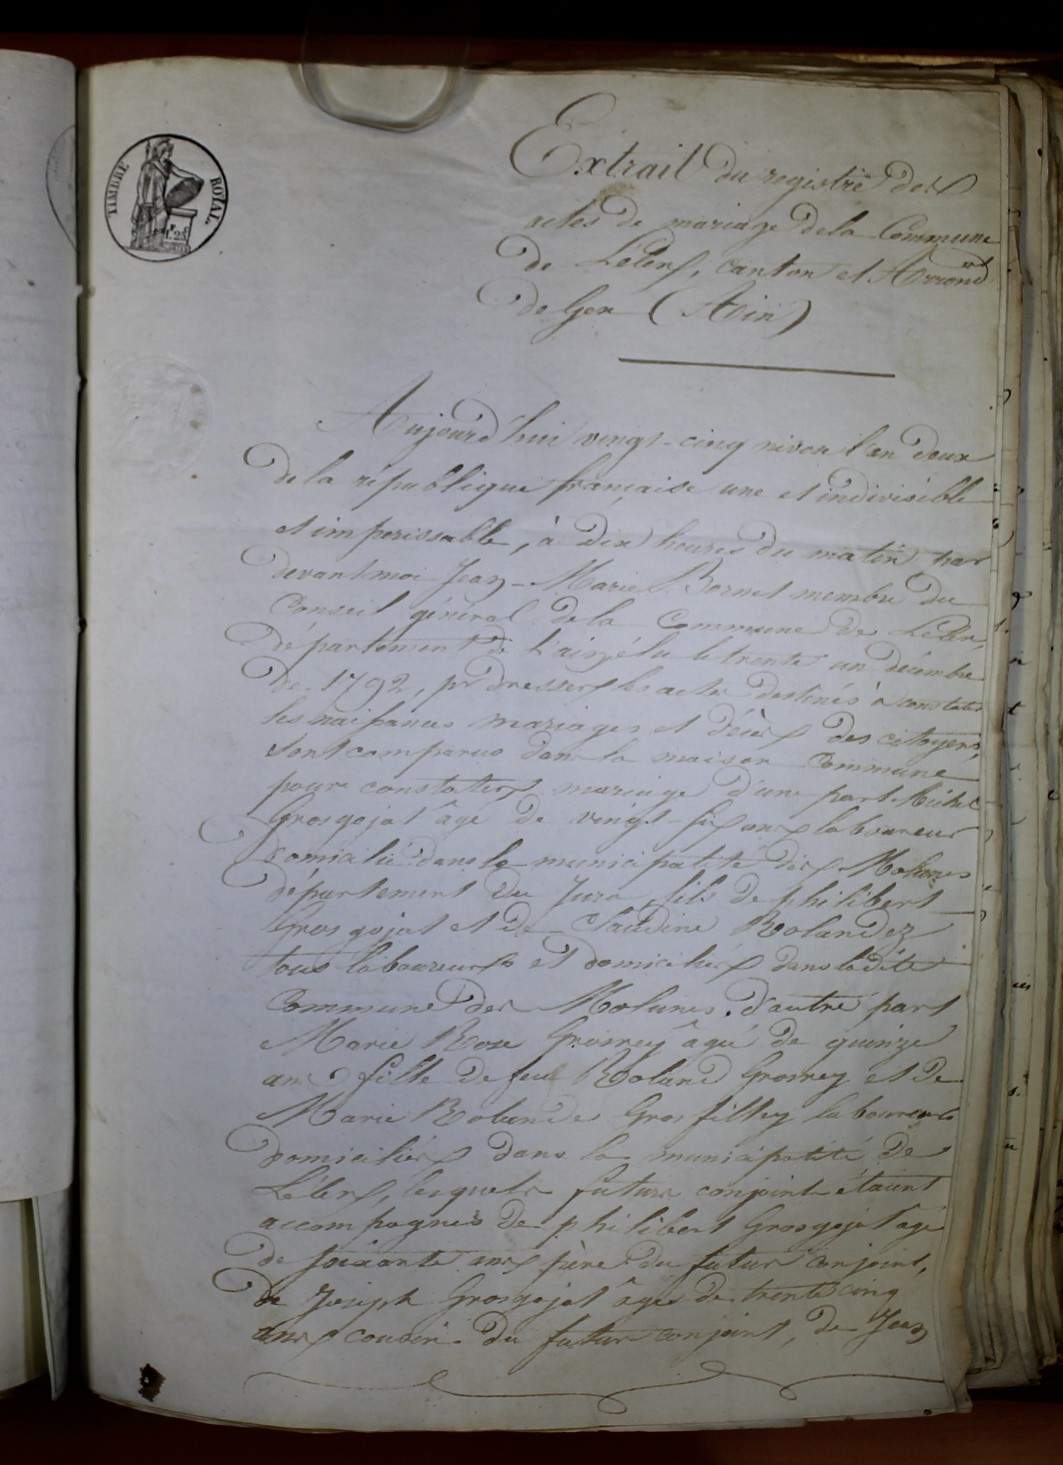 TIMBRE ROYAL
Extrait du registre des
actes de mariage de la Commune
de Lélex, canton et Arrond
de Gex (Ain)
Aujourd'hui vingt-cinq nivose l'an deux
de la république française une et indivisible
et imperissable, à dix heures du matin, par
devant moi Jean-Marie Bornet membre du
Conseil général de la Commune de Lélex,
département de l'ain, élu le trente un décembre
de 1792, pr dresser les actes destinés à constater
les naissances mariages et décès des citoyens,
sont comparus dans la maison Commune
pour constater mariage d'une part Michel
Grosgojat âgé de vingt-six ans laboureur
domicilié dans la municipalité des Molunes
département du Jura, fils de philibert
Grosgojat et de Claudine Rolandez
tous laboureurs et domiciliés dans la dite
Commune des Molunes. d'autre part
Marie Rose Grosrey âgé de quinze
ans fille de feu Roland Grosrey et de
Marie Rolande Grosfilley laboureurs
domiciliés dans la municipalité de
Lélex, lesquels futurs conjoints étaient
accompagnés de philibert Grosgojat âgé
de soixante ans père du futur conjoint,
de Joseph Grosgojat âgé de trente cinq
ans cousin du futur conjoint, de Jean